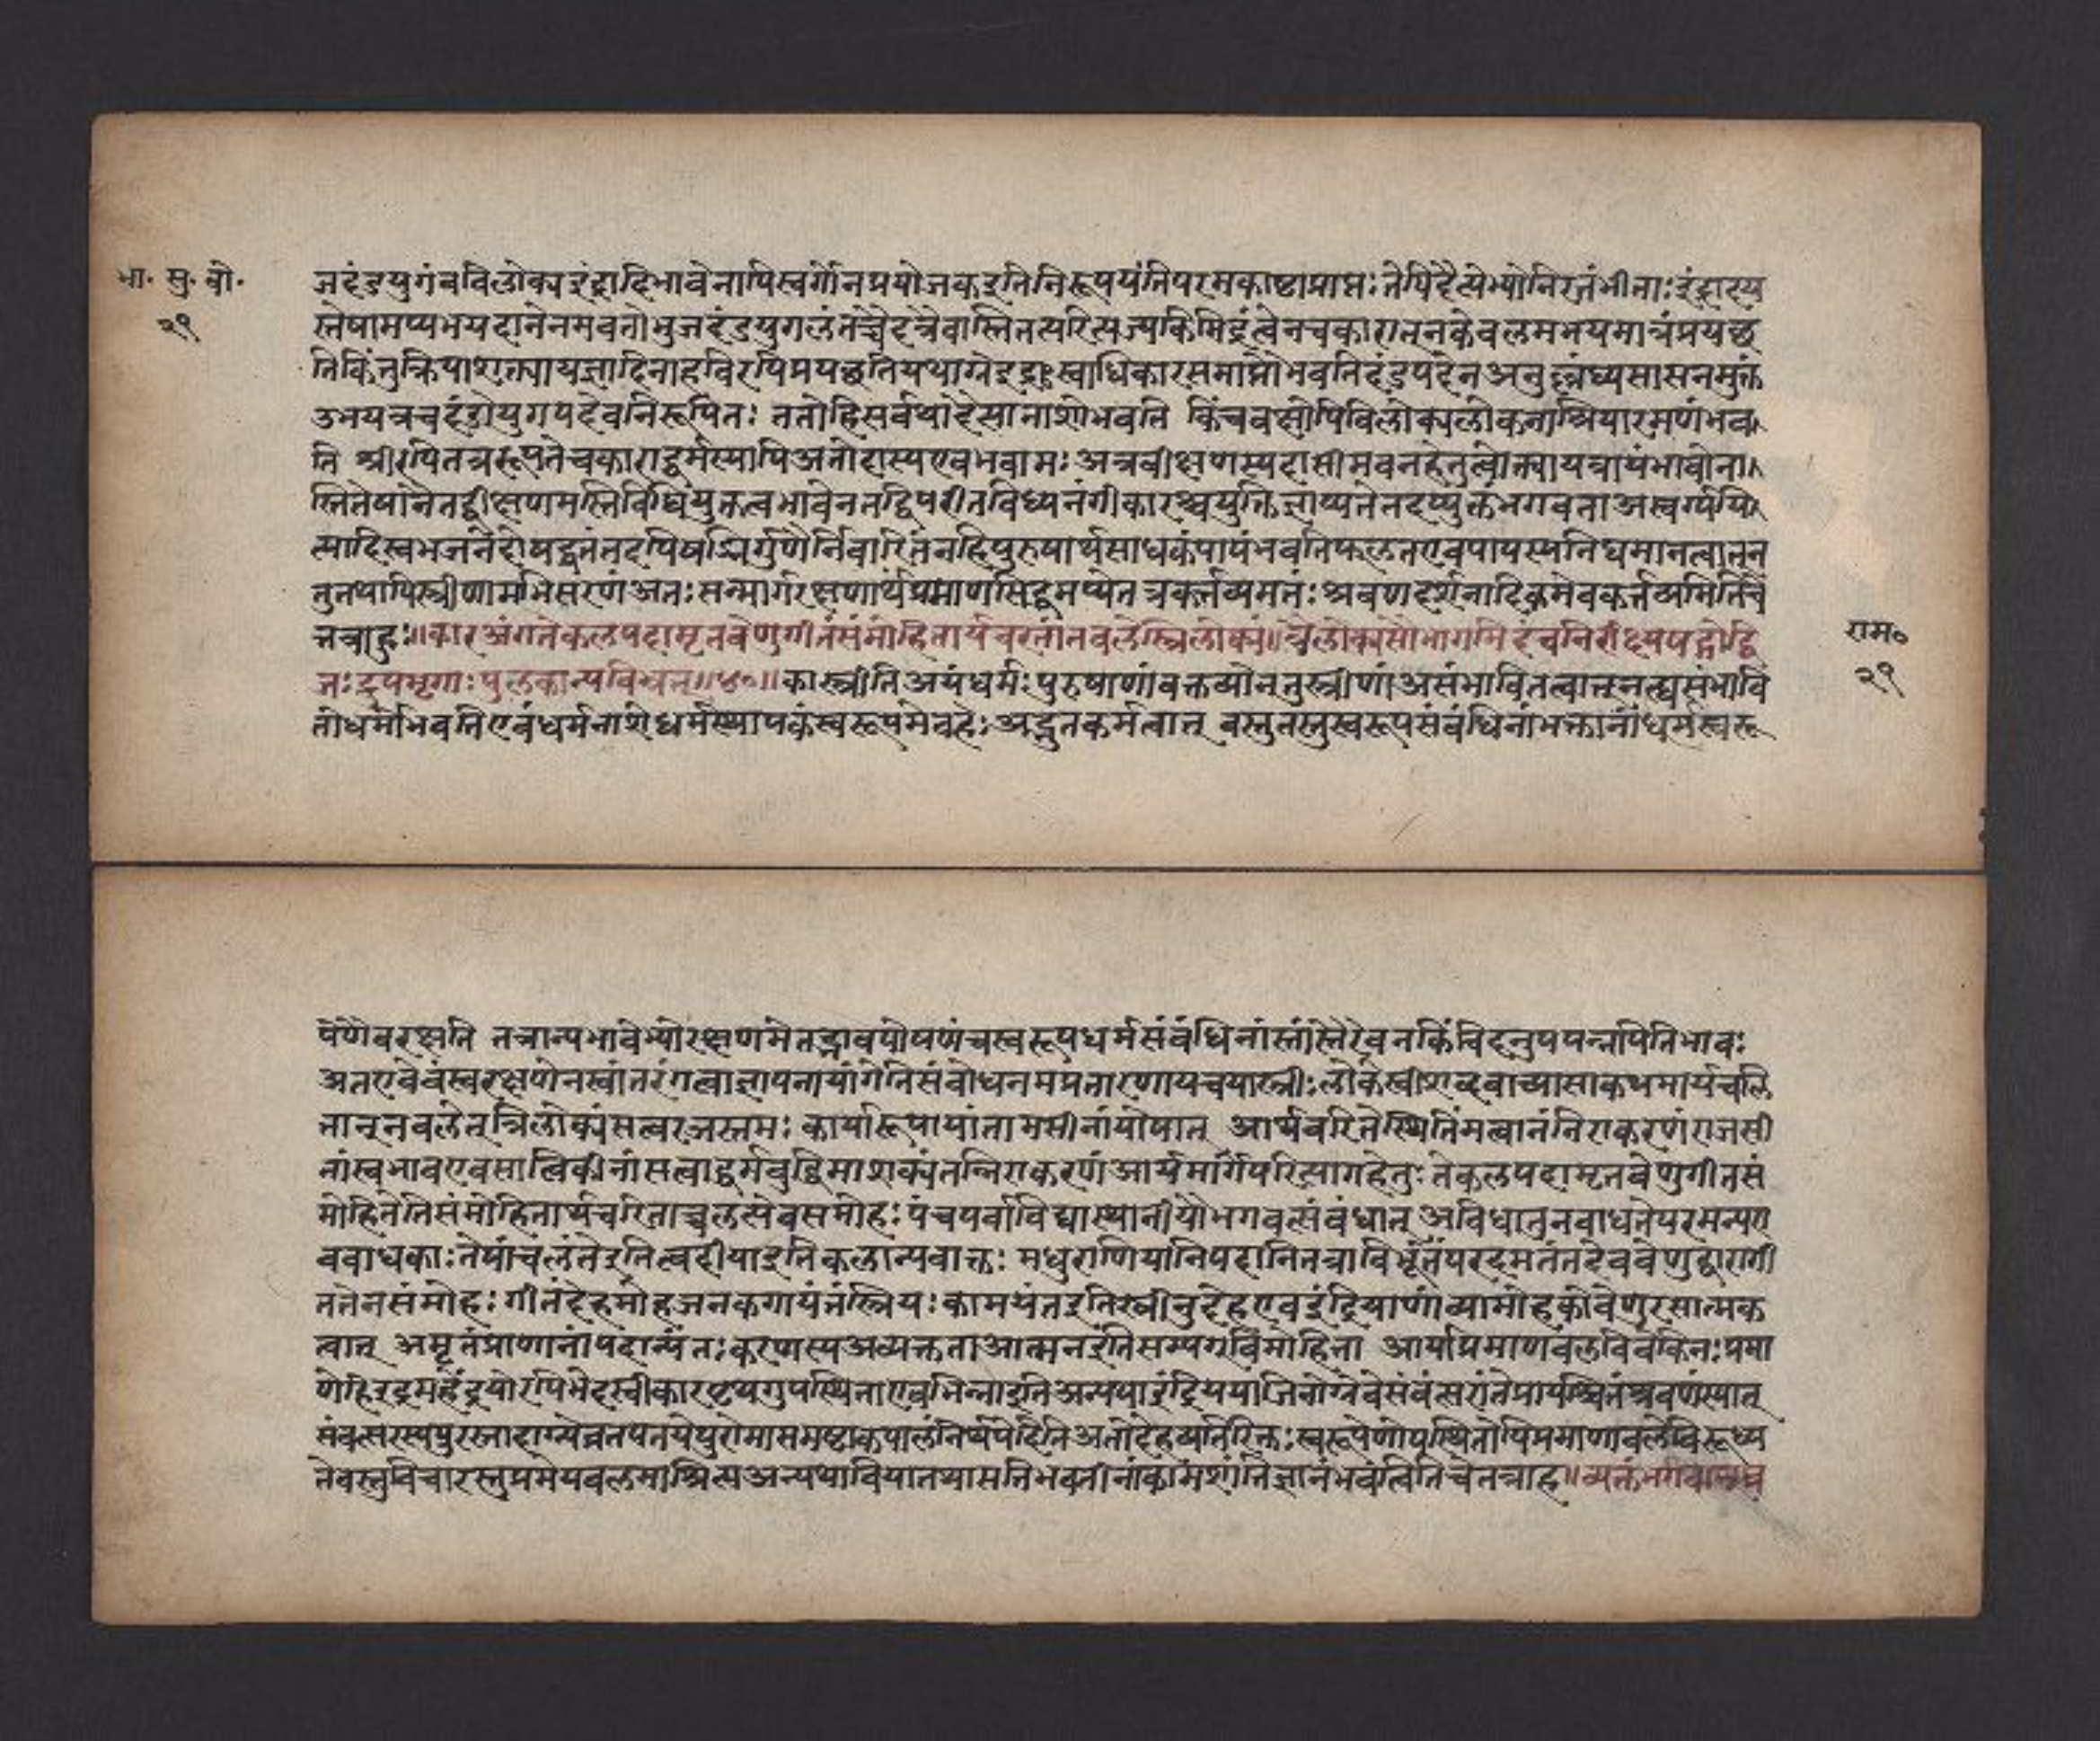 भा. सु. बो.
२९
जदंडयुगंचविलोक्य इंद्रादिभावेनापिस्वर्गोनप्रयोजकइतिनिरूपयंतिपरमकाष्टाप्राप्तः तेपिदैत्येभ्योनिरतंभीताः इंद्रादय
स्तेषामप्यभयदानेनमवतो भुजदंडयुगलंतच्चेदत्रैवास्तितत्परित्यज्यकिमिंद्रत्वेनचकारात् नकेवलमभयमात्रंप्रयच्छं
तिकिंनुक्रियाशक्त्यायज्ञादिनाहविरपिप्रयच्छति स्वाधिकारसमाप्तौभवतिदंडपदेन अनुल्लंघ्यसासनमुक्तं
उभयत्रचदंडोयुगपदेवनिरूपितः ततोहिसर्वथादेत्सानाशोभवति किंचवक्षोपिविलोक्यलोकनाश्रियारमणंभव
ति श्रीरपितत्ररूपतेचकाराद्धर्मस्यापिअतोदास्यएवभवामः अत्रवीक्षणस्यदासीभवनहेतुत्वोक्त्यायत्रायंभावोना
स्तितेषांनैतद्वीक्षणमस्तिविधियुक्तत्वभावेनतद्विपरीतविध्यनंगीकारश्चयुक्तिज्ञाप्यतेतदप्युक्तंभगवताअस्वर्ग्यमि
त्यादिस्वभजनेदोषद्वतंतदपिषड्भिर्गुणैर्निवारितंनहिपुरुषार्थसाधकंपापंभवतिफलतएवपापस्यनिघमानत्वात्नन
नुतथापिस्त्रीणामभिसरणं अतः सन्मार्गरक्षणार्थंप्रमाणसिद्धमप्येतन्नकर्त्तव्यमतः श्रवणदर्शनादिकमेवकर्त्तव्यमितिचे
त्तत्राहुः॥कास्त्र्यंगतेकलपदामृतवेणुगीतसंमोहितार्यचरितान्नचलेस्त्रिलोक्यां॥त्रैलोक्यसौभगमिदंचनिरीक्ष्यपद्गोद्वि
जःद्रुपमृगाः पुलकान्यबिभ्रन्॥४०॥ कास्त्रीतिअयंधर्मः पुरुषाणांवक्तव्योनतुस्त्रीणां असंभावितत्वात्नत्वसंभावि
तोधर्मोभवतिएवंधर्मनाशेधर्मस्थापकंस्वरूपमेवहेः अद्भुतकर्मत्वात् वस्तुतस्तुस्वरूपसंबंधिनांभक्तानांधर्मस्वरू
राम०
२९
पेणैवरक्षति तत्रान्यभावेभ्योरक्षणमेतद्भावपोषणंचस्वरूपधर्मसंबंधिनांस्तांस्तैरेवनकिंचिदनुपपन्नमितिभावः
अतएवेवंस्वरक्षणेनस्वांतरंगत्वाज्ञापनायांगेतिसंबोधनमप्रतारणायचयास्त्रीः लोकेस्त्रीशब्दवाच्यासाकथमार्यचलि
तात्नचलेत्त्रिलोक्यंसत्वरजस्तमः कार्यारूपायांतामसीनांयोषात् आर्यचरितेस्थितिंमत्वानंनिराकरणंराजसी
नांस्वभावएवसात्विकीनांसत्वाद्धर्मबुद्धिमाशक्यंतन्निराकरणं आर्यमार्गपरित्यागहेतुः तेकलपदामृतवेणुगीतसं
मोहितेतिसंमोहितार्यचरिताच्चलत्येवसमोहः पंचपर्वाविद्यास्थानीयोभगवत्संबंधात् अविधातुनबाधतेपरमन्यए
वबाधकाः तेषांचलंतेइतित्वदीयाइतिकलान्यवाक्तः मधुराणियानिपदानितत्राविर्भूतंपरदमतंतदेववेणुद्वारागी
ततेनसंमोहः गीतंदेहमोहजनकगायंतंस्त्रियः कामयंतइतिस्त्रीनुदेहएवइंद्रियाणांव्यामोहकोवेणुरसात्मक
त्वात् अमृतंप्राणानांपदान्यंतःकरणस्यअव्यक्तताआत्मनइतिसम्यग्विमोहिता आर्याप्रमाणबलविवेकिनः प्रमा
णेहिरुद्रमहेंद्रयोरपिभेदस्वीकार अन्यथाइंद्रियया
संवत्सरस्य अतोदेहव्यतिरिक्तः स्वरूपेणोपस्थितोपिप्रमाणबलेविरूध्य
तेवस्तुविचारस्तुप्रमेयबलमाश्रित्यअन्यथावियातथासतिभवतीनांकामशांतिज्ञानंभवत्वितिचेतत्राह॥व्यक्तंभवान्